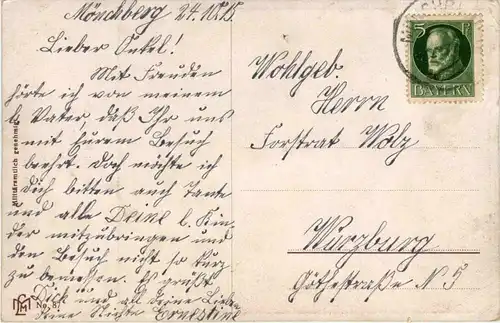 Mönchberg 24.10.15.
Lieber Onkel!
Mit Freuden
hörte ich von meinem
l. Vater, daß Ihr uns
mit Eurem Besuch
beehrt. Doch möchte ich
Dich bitten auch Tante
und alle Deine l. Kin
der mitzubringen und
den Besuch nicht so kurz
zu bemessen. Es grüßt
Dich und all Deine Lieben
Deine Nichte Ernestine
Wohlgeb.
Herrn
Forstrat Wolz
Würzburg
Göthestraße N 5
5 Pf
BAYERN
Allfidremtlich genehmigt
No. 8